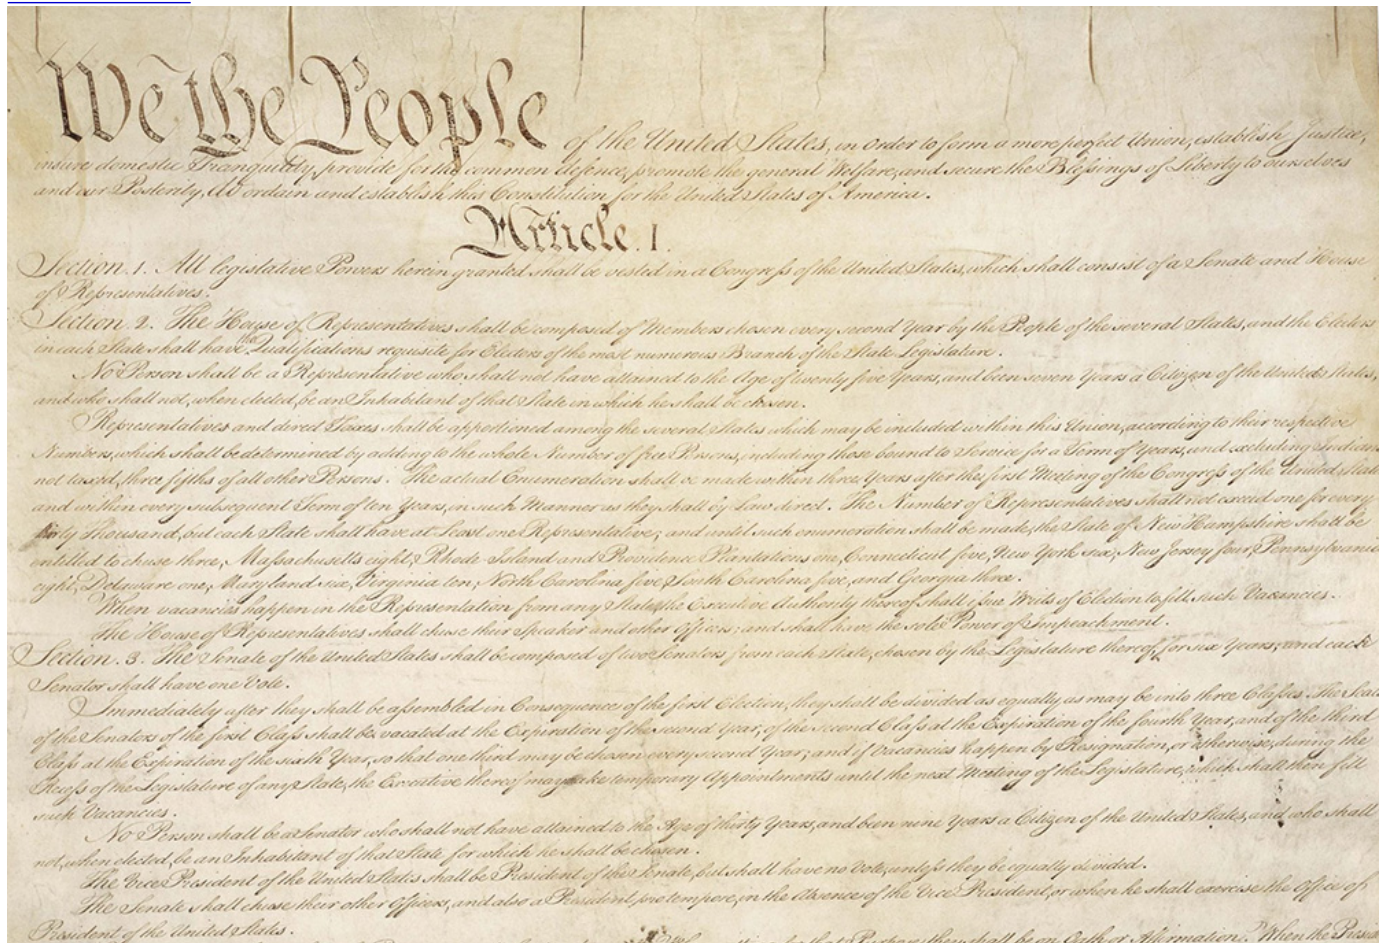 We the People of the United States, in Order to form a more perfect Union, establish Justice,
insure domestic Tranquility, provide for the common defence, promote the general Welfare, and secure the Blessings of Liberty to ourselves
and our Posterity, do ordain and establish this Constitution for the United States of America.
Article. I.
Section. 1. All legislative Powers herein granted shall be vested in a Congress of the United States, which shall consist of a Senate and House
of Representatives.
Section. 2. The House of Representatives shall be composed of Members chosen every second Year by the People of the several States, and the Electors
in each State shall have the Qualifications requisite for Electors of the most numerous Branch of the State Legislature.
No Person shall be a Representative who shall not have attained to the Age of twenty five Years, and been seven Years a Citizen of the United States,
and who shall not, when elected, be an Inhabitant of that State in which he shall be chosen.
Representatives and direct Taxes shall be apportioned among the several States which may be included within this Union, according to their respective
Numbers, which shall be determined by adding to the whole Number of free Persons, including those bound to Service for a Term of Years, and excluding Indians
not taxed, three fifths of all other Persons. The actual Enumeration shall be made within three Years after the first Meeting of the Congress of the United States
and within every subsequent Term of ten Years, in such Manner as they shall by Law direct. The Number of Representatives shall not exceed one for every
thirty Thousand, but each State shall have at Least one Representative; and until such enumeration shall be made, the State of New Hampshire shall be
entitled to chuse three, Massachusetts eight, Rhode Island and Providence Plantations one, Connecticut five, New York six, New Jersey four, Pennsylvania
eight, Delaware one, Maryland six, Virginia ten, North Carolina five, South Carolina five, and Georgia three.
When vacancies happen in the Representation from any State, the Executive Authority thereof shall issue Writs of Election to fill such Vacancies.
The House of Representatives shall chuse their Speaker and other Officers; and shall have the sole Power of Impeachment.
Section. 3. The Senate of the United States shall be composed of two Senators from each State, chosen by the Legislature thereof, for six Years; and each
Senator shall have one Vote.
Immediately after they shall be assembled in Consequence of the first Election, they shall be divided as equally as may be into three Classes. The Seats
of the Senators of the first Class shall be vacated at the Expiration of the second Year, of the second Class at the Expiration of the fourth Year, and of the third
Class at the Expiration of the sixth Year, so that one third may be chosen every second Year; and if Vacancies happen by Resignation, or otherwise, during the
Recess of the Legislature of any State, the Executive thereof may make temporary Appointments until the next Meeting of the Legislature, which shall then fill
such Vacancies.
No Person shall be a Senator who shall not have attained to the Age of thirty Years, and been nine Years a Citizen of the United States, and who shall
not, when elected, be an Inhabitant of that State for which he shall be chosen.
The Vice President of the United States shall be President of the Senate, but shall have no Vote, unless they be equally divided.
The Senate shall chuse their other Officers, and also a President pro tempore, in the Absence of the Vice President, or when he shall exercise the Office of
President of the United States.
that Purpose they shall be on Oath or Affirmation. When the